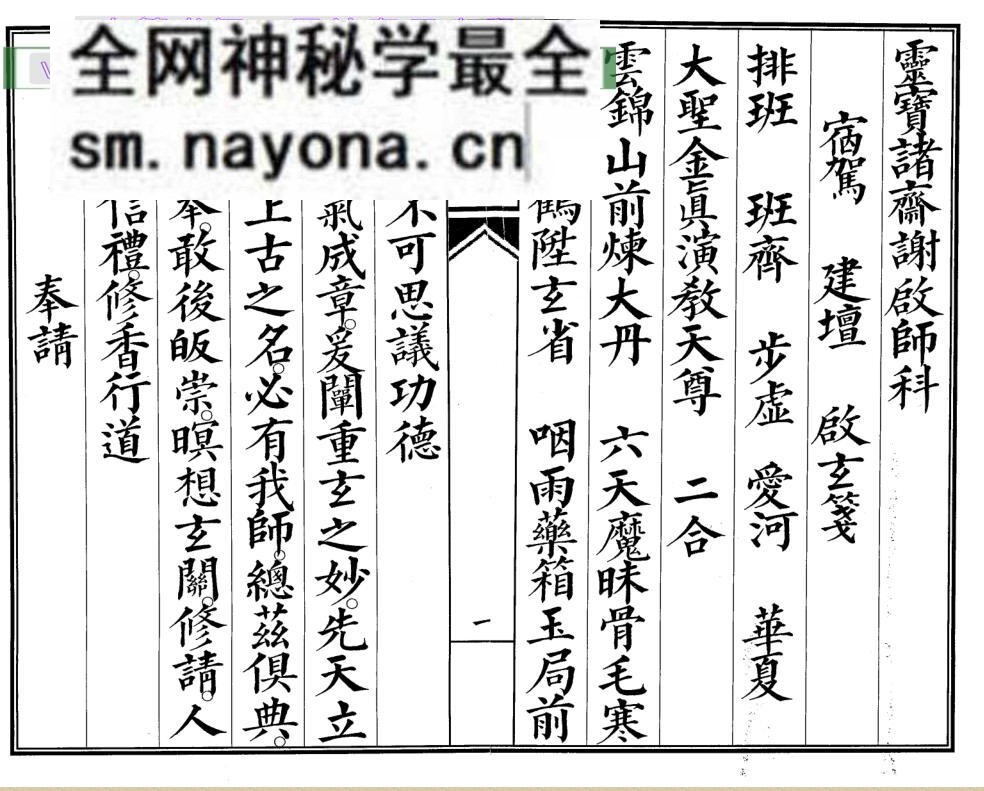 全网神秘学最全
sm.nayona.cn
靈寶諸齋謝啟師科
宿駕 建壇 啟玄箋
排班 班齊 步虛 愛河 華夏
大聖金眞演教天尊 二合
雲錦山前煉大丹 六天魔昧骨毛寒
鶴陞玄省 咽雨藥箱玉局前
一
不可思議功德
氣成章爰闡重玄之妙先天立
上古之名必有我師總茲俱典
奉敢後皈崇暝想玄關修請人
信禮修香行道
奉請